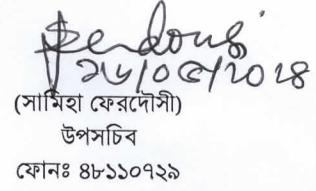 Ferdousi
২৬/০৫/২০২৪
(সামিহা ফেরদৌসী)
উপসচিব
ফোনঃ ৪৮১১০৭২৯